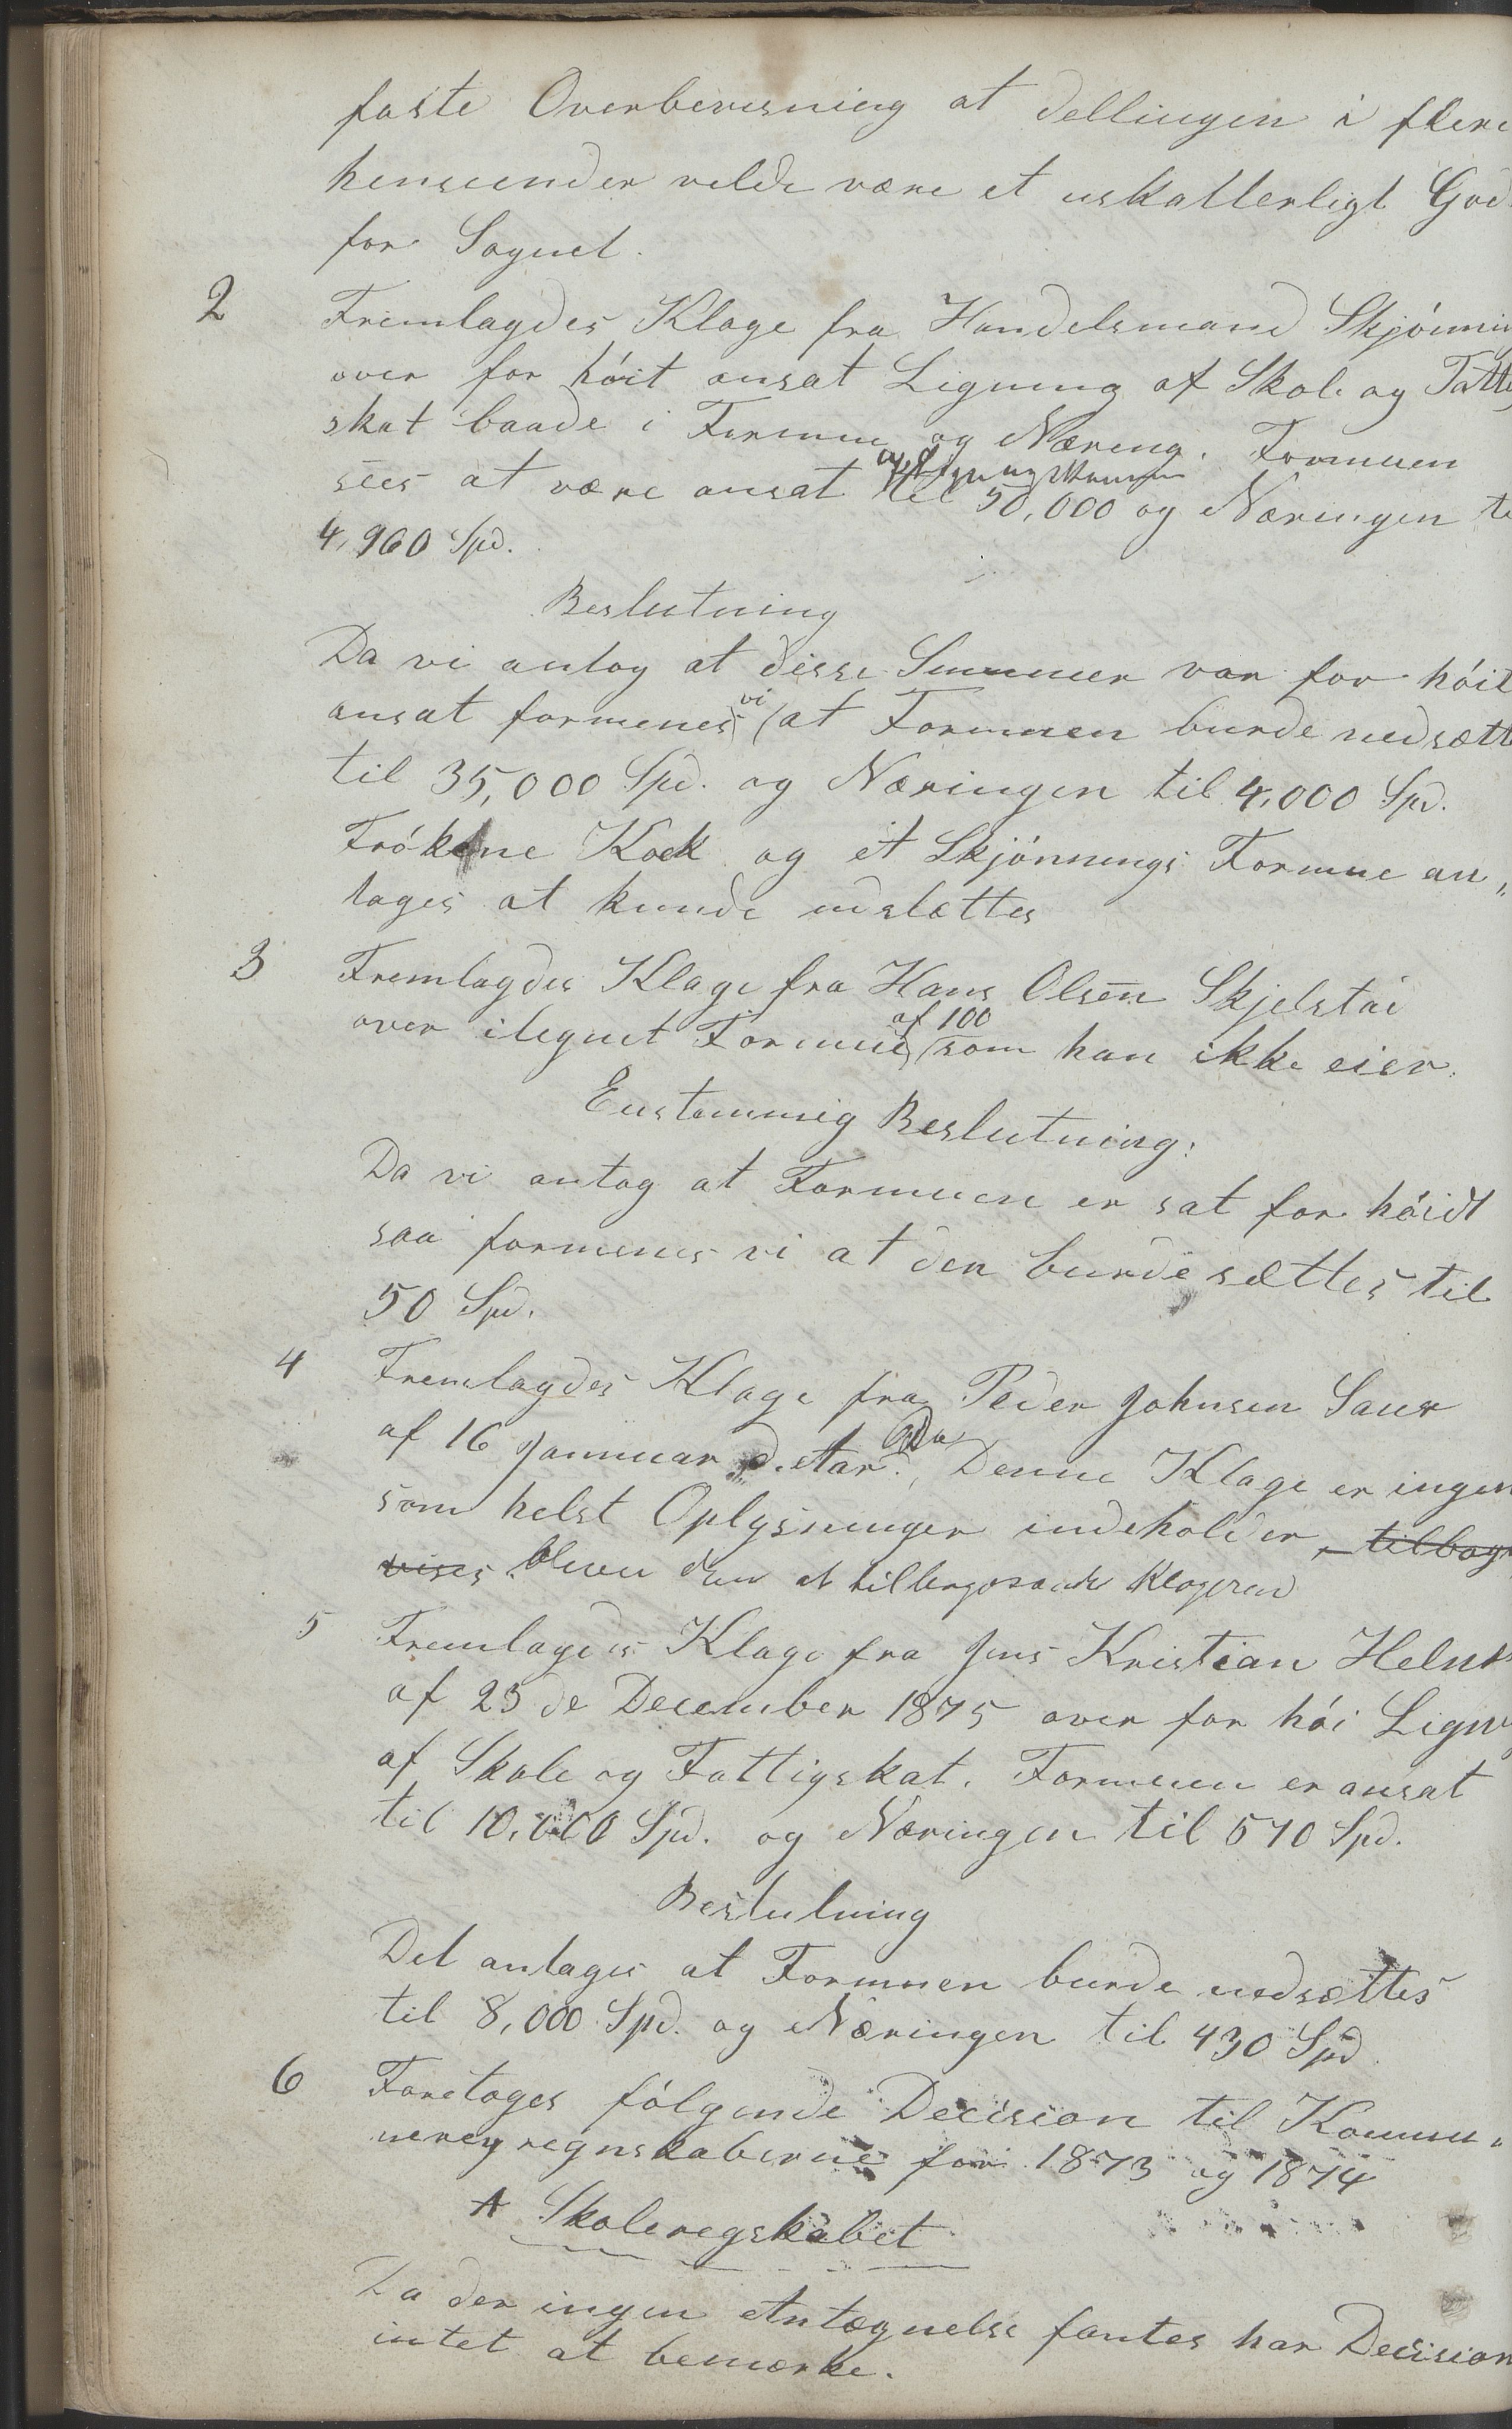 faste Overbevisning at Dellingen i flere
henseender vilde være et uskatterligt God
for Sognet.
2 Fremlagdes Klage fra Handelsmand Skjönnin
over for höit ansat Ligning af Skole og Fatti
skat baade i Formue og Næring. Formuen
sees at være ansat til 50,000 og Næringen ti
4,960 Spd.
Beslutning
Da vi antog at disse Summer var for höit
ansat formenes vi at Formuen burde nedsætte
til 35,000 Spd. og Næringen til 4,000 Spd.
Frökene Kock og et Skjönnings Formue an„
tages at kunde udslettes
3 Fremlagdes Klage fra Hans Olsen Skjelstai
over ilegnet Formue af 100 som han ikke eier.
Enstemmig Beslutning:
Da vi antog at Formuen er sat for höidt
saa formenes vi at den burde sættes til
50 Spd.
4 Fremlagdes Klage fra Peder Johnsen Saur
af 16 Januuar d. Aar. Da Denne Klage er ingen
som helst Oplysninger indeholder, tilbag
vises. blev den at tilbagesende Klageren
5 Fremlagdes Klage fra Jens Kristian Helns
af 23de December 1875 over for höi Lign
af Skole og Fattigskat. Formuen er ansat
til 10,000 Spd. og Næringen til 570 Spd.
Beslutning
Det antages at Formuen burde nedsættes
til 8,000 Spd. og Næringen til 430 Spd
6 Foretages fölgende Decision til Kommu„
neregnskaberne for 1873 og 1874
A Skoleregskabet
Da der ingen Antægnelse fantes har Decision
intet at bemærke.